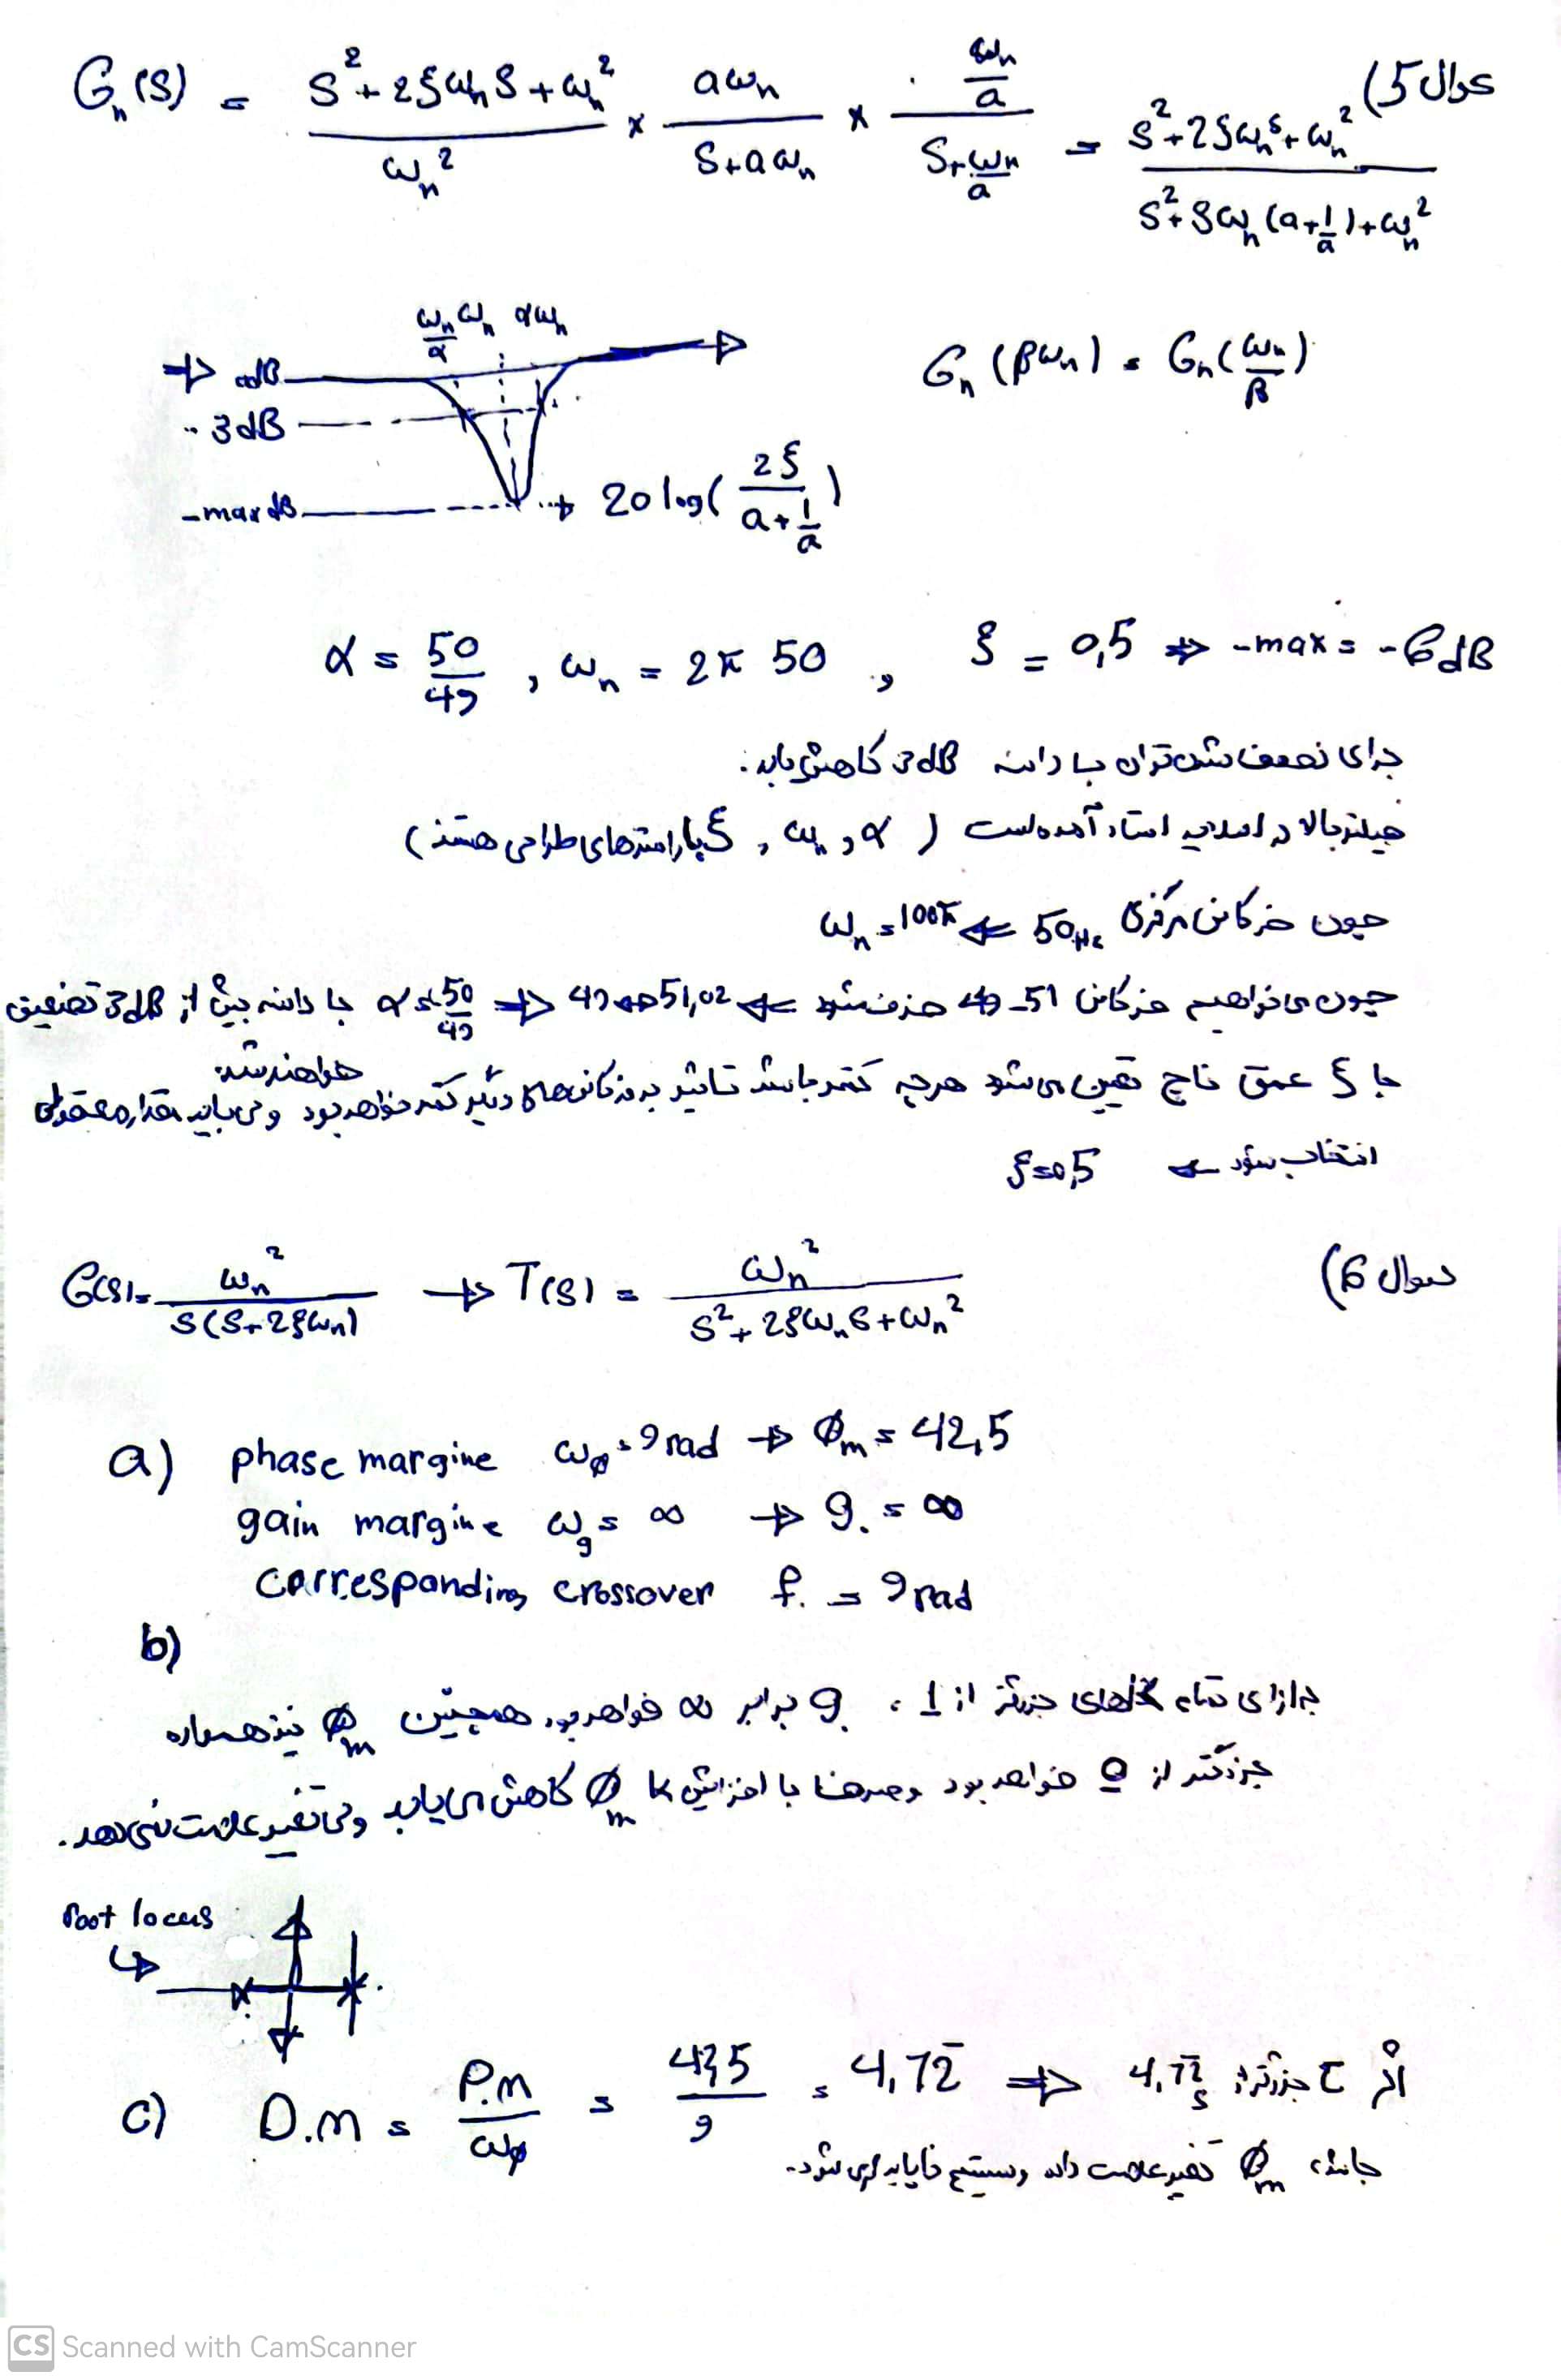 سوال 5)
G_n(s) = (s² + 2ξω_n s + ω_n²) / ω_n² × aω_n / (s + aω_n) × (ω_n/a) / (s + ω_n/a) = (s² + 2ξω_n s + ω_n²) / (s² + ξω_n (a + 1/a) + ω_n²)
ω_n/α ω_n αω_n
→ 0dB G_n(βω_n) = G_n(ω_n/β)
-3dB
-max dB → 20 log( 2ξ / (a + 1/a) )
α = 50/49 , ω_n = 2π 50 , ξ = 0,5 ⇒ -max = -6dB
برای تضعیف شدن توان باید دامنه 3dB کاهش یابد.
فیلتر بالا در اسلاید استاد آمده است ( α و ω_n , ξ پارامترهای طراحی هستند )
چون فرکانس مرکزی 50Hz ⇐ ω_n = 100π
چون می‌خواهیم فرکانس 49-51 حذف شود ⇐ 49 51,02 ⇒ α = 50/49 با دامنه بیش از 3dB تضعیف
خواهند شد
با ξ عمق ناچ تعیین می‌شود هرچه کمتر باشد تاثیر بر فرکانس‌های دیگر کمتر خواهد بود ولی باید مقدار معقولی
انتخاب شود ← ξ=0,5
سوال 6)
G(s) = ω_n² / s(s + 2ξω_n) → T(s) = ω_n² / (s² + 2ξω_n s + ω_n²)
a) phase margine ω_φ = 9 rad → Φ_m = 42,5
gain margine ω_g = ∞ → g. = ∞
corresponding crossover f. = 9 rad
b)
به ازای تمام گین‌های بزرگتر از 1 ، g. برابر ∞ خواهد بود. همچنین Φ_m نیز همواره
بزرگتر از 0 خواهد بود و صرفا با افزایش k Φ_m کاهش می‌یابد ولی تغییر علامت نمی‌دهد.
root locus
c) D.M = P.M / ω_φ = 42,5 / 9 = 4,72 ⇒ اگر τ بزرگتر از 4,72 s
باشد، Φ_m تغییر علامت داده و سیستم ناپایدار می‌شود.
CS Scanned with CamScanner